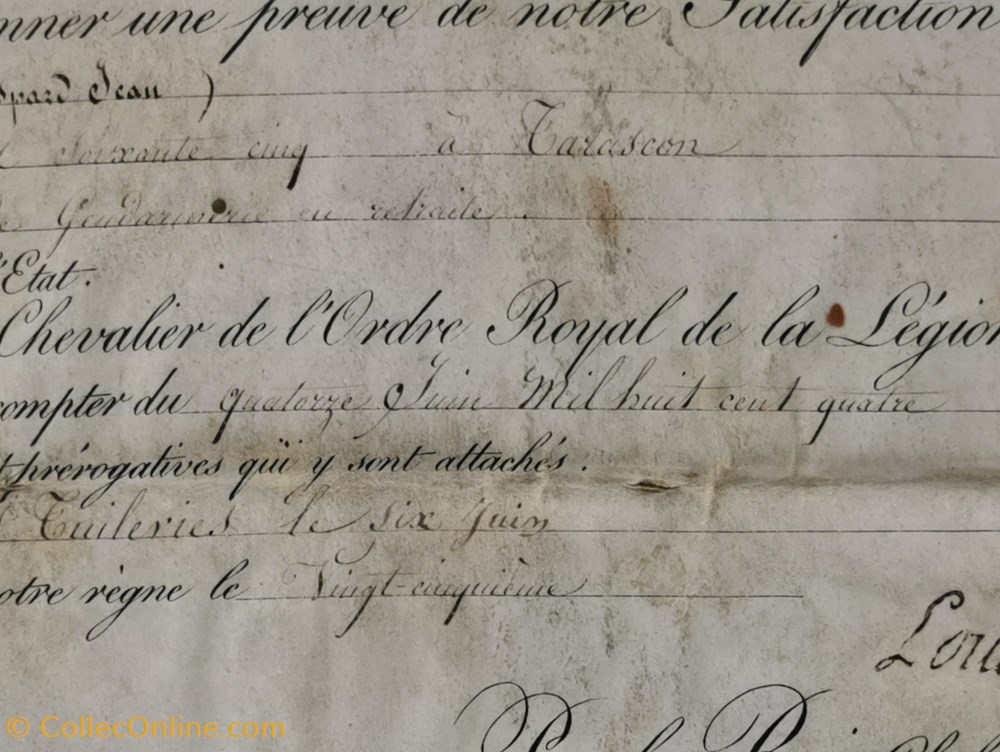 nner une preuve de notre Satisfaction
spard Jean )
soixante cinq à Tarascon
Gendarmerie en retraite.
l'Etat.
Chevalier de l'Ordre Royal de la Légion
compter du quatorze Juin Mil huit cent quatre
prérogatives qui y sont attachés.
Tuileries le six Juin
otre règne le Vingt-cinquième
Lou
© CollecOnline.com